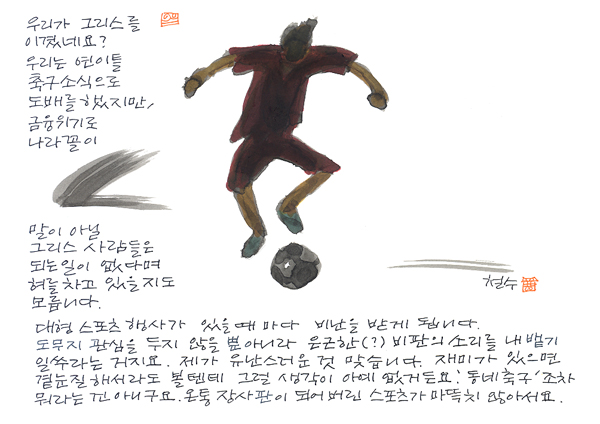 우리가 그리스를
이겼네요?
우리는 연이틀
축구소식으로
도배를 했지만,
금융위기로
나라꼴이
말이 아닐
그리스 사람들은
되는일이 없다며
혀를 차고 있을지도
모릅니다.
철수
대형 스포츠 행사가 있을때 마다 비난을 받게 됩니다.
도무지 관심을 두지 않을 뿐아니라 은근한(?) 비판의 소리를 내뱉기
일쑤라는 거지요. 제가 유난스러운 것 맞습니다. 재미가 있으면
곁눈질 해서라도 볼텐데 그럴 생각이 아예 없거든요! '동네축구' 조차
뭐라는 건 아니구요. 온통 장사판이 되어버린 스포츠가 마뜩치 않아서요.